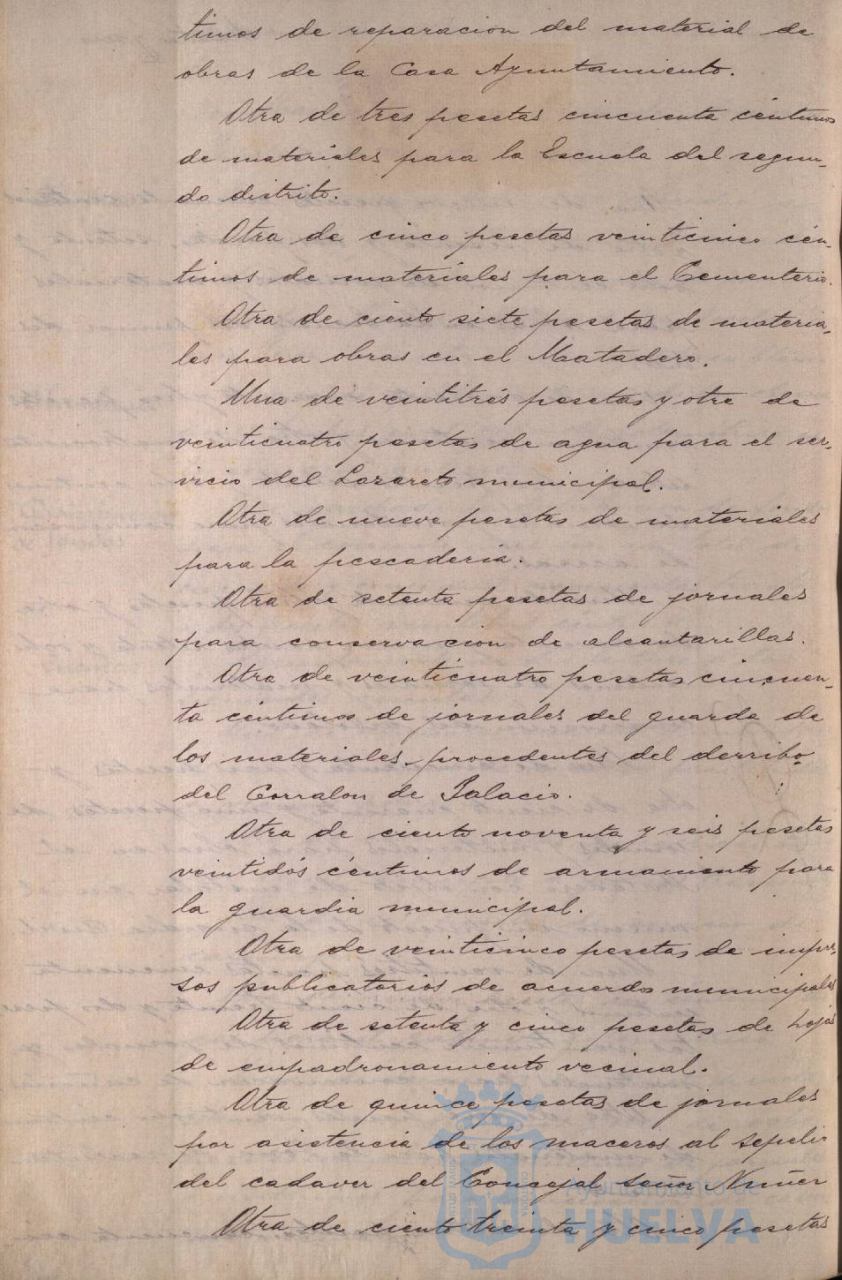 timos de reparacion del material de
obras de la Casa Ayuntamiento.
Otra de tres pesetas cincuenta céntimos
de materiales para la Escuela del segun-
do distrito.
Otra de cinco pesetas veinticinco cén-
timos de materiales para el Cementerio.
Otra de ciento siete pesetas de materia-
les para obras en el Matadero.
Una de veintitrés pesetas y otra de
veinticuatro pesetas de agua para el ser-
vicio del Lazareto municipal.
Otra de nueve pesetas de materiales
para la pescaderia.
Otra de setenta pesetas de jornales
para conservacion de alcantarillas.
Otra de veinticuatro pesetas cincuen-
ta céntimos de jornales del guarda de
los materiales procedentes del derribo
del Corralon de Palacio.
Otra de ciento noventa y seis pesetas
veintidós céntimos de armamento para
la guardia municipal.
Otra de veinticinco pesetas de impre-
sos publicatorios de acuerdo municipales
Otra de setenta y cinco pesetas de hojas
de empadronamiento vecinal.
Otra de quince pesetas de jornales
por asistencia de los maceros al sepelio
del cadaver del Concejal señor Nuñez
Otra de ciento treinta y cinco pesetas
Ayuntamiento de
HUELVA